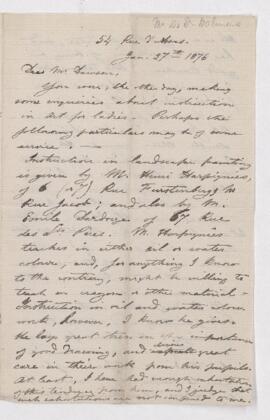 54 Rue d'Assas.
Jan. 27th 1876
Dear Mr Dawson,
You were, the other day, making
some enquiries about instruction
in Art for ladies. Perhaps the
following particulars may be of some
service:—
Instruction in landscape painting
is given by M. Henri Harpignies,
of 6 Rue Furstenberg,
Rue Jacob; and also by M.
Emile Dardoize of 67 Rue
des Sts Pères. M. Harpignies
teaches in either oil or water
colour, and, for anything I know
to the contrary, might be willing to
teach in crayons or other material.
Instruction in oil and water colour
work, however, I know he gives.
He lays great stress on the importance
of good drawing, and desires great
care in their work from his pupils.
At least, I have had enough
of this tendency from him, and I judge that
such exhortations are not confined to me.